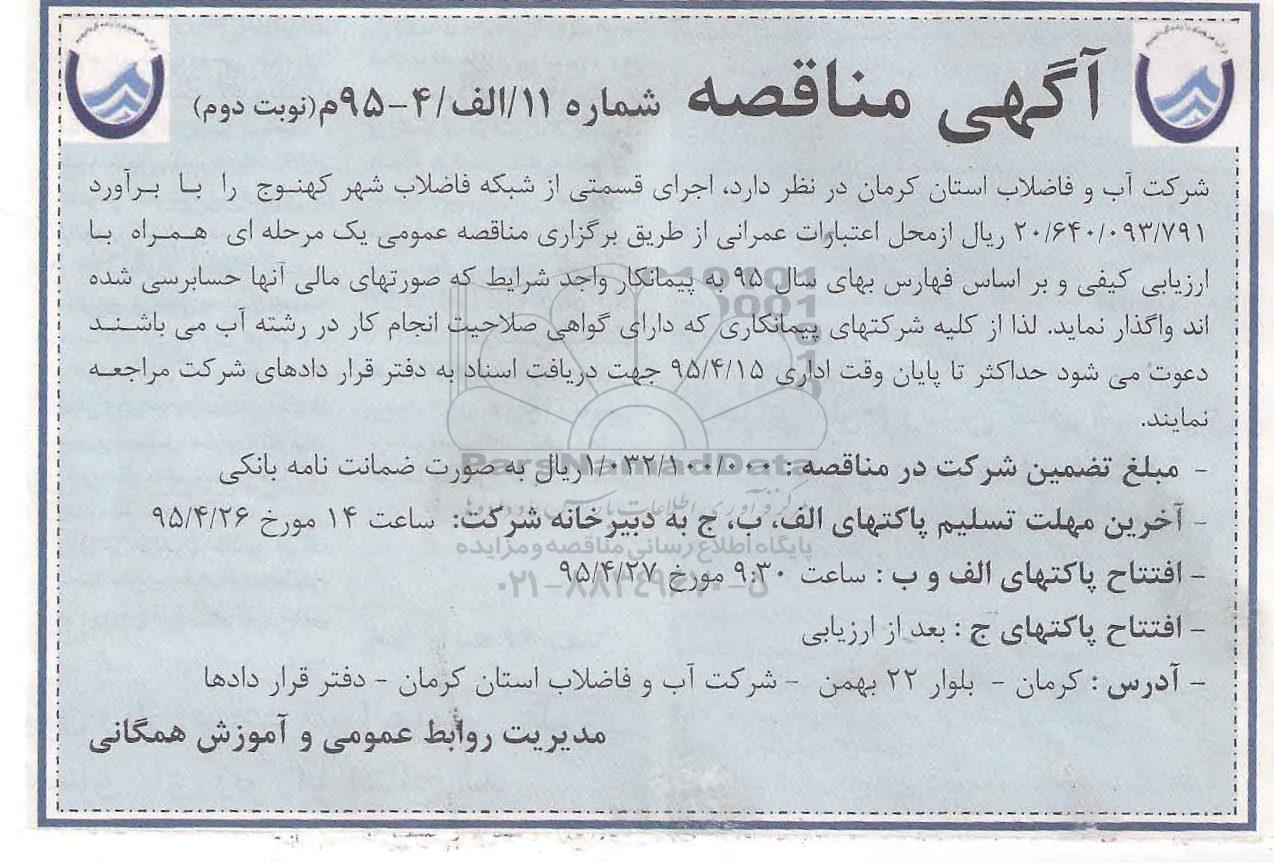 آگهی مناقصه شماره ۱۱/الف/۴-۹۵م(نوبت دوم)
شرکت آب و فاضلاب استان کرمان در نظر دارد، اجرای قسمتی از شبکه فاضلاب شهر کهنوج را با برآورد
۲۰/۶۴۰/۰۹۳/۷۹۱ ریال ازمحل اعتبارات عمرانی از طریق برگزاری مناقصه عمومی یک مرحله ای همراه با
ارزیابی کیفی و بر اساس فهارس بهای سال ۹۵ به پیمانکار واجد شرایط که صورتهای مالی آنها حسابرسی شده
اند واگذار نماید. لذا از کلیه شرکتهای پیمانکاری که دارای گواهی صلاحیت انجام کار در رشته آب می باشند
دعوت می شود حداکثر تا پایان وقت اداری ۹۵/۴/۱۵ جهت دریافت اسناد به دفتر قرار دادهای شرکت مراجعه
نمایند.
- مبلغ تضمین شرکت در مناقصه : ۱/۰۳۲/۱۰۰/۰۰۰ریال به صورت ضمانت نامه بانکی
ParsNamadData
- آخرین مهلت تسلیم پاکتهای الف، ب، ج به دبیرخانه شرکت: ساعت ۱۴ مورخ ۹۵/۴/۲۶
پایگاه اطلاع رسانی مناقصه و مزایده
- افتتاح پاکتهای الف و ب : ساعت ۹:۳۰ مورخ ۹۵/۴/۲۷
۰۲۱-۸۸۳۴۹۶۷۰-۵
- افتتاح پاکتهای ج : بعد از ارزیابی
- آدرس : کرمان - بلوار ۲۲ بهمن - شرکت آب و فاضلاب استان کرمان - دفتر قرار دادها
مدیریت روابط عمومی و آموزش همگانی